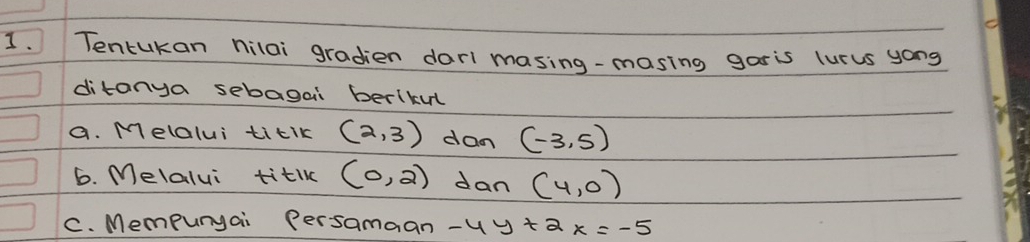 1. Tentukan nilai gradien dari masing-masing garis lurus yang
ditanya sebagai berikut
a. Melalui titik (2,3) dan (-3,5)
b. Melalui titik (0,2) dan (4,0)
c. Mempunyai Persamaan -4y+2x=-5